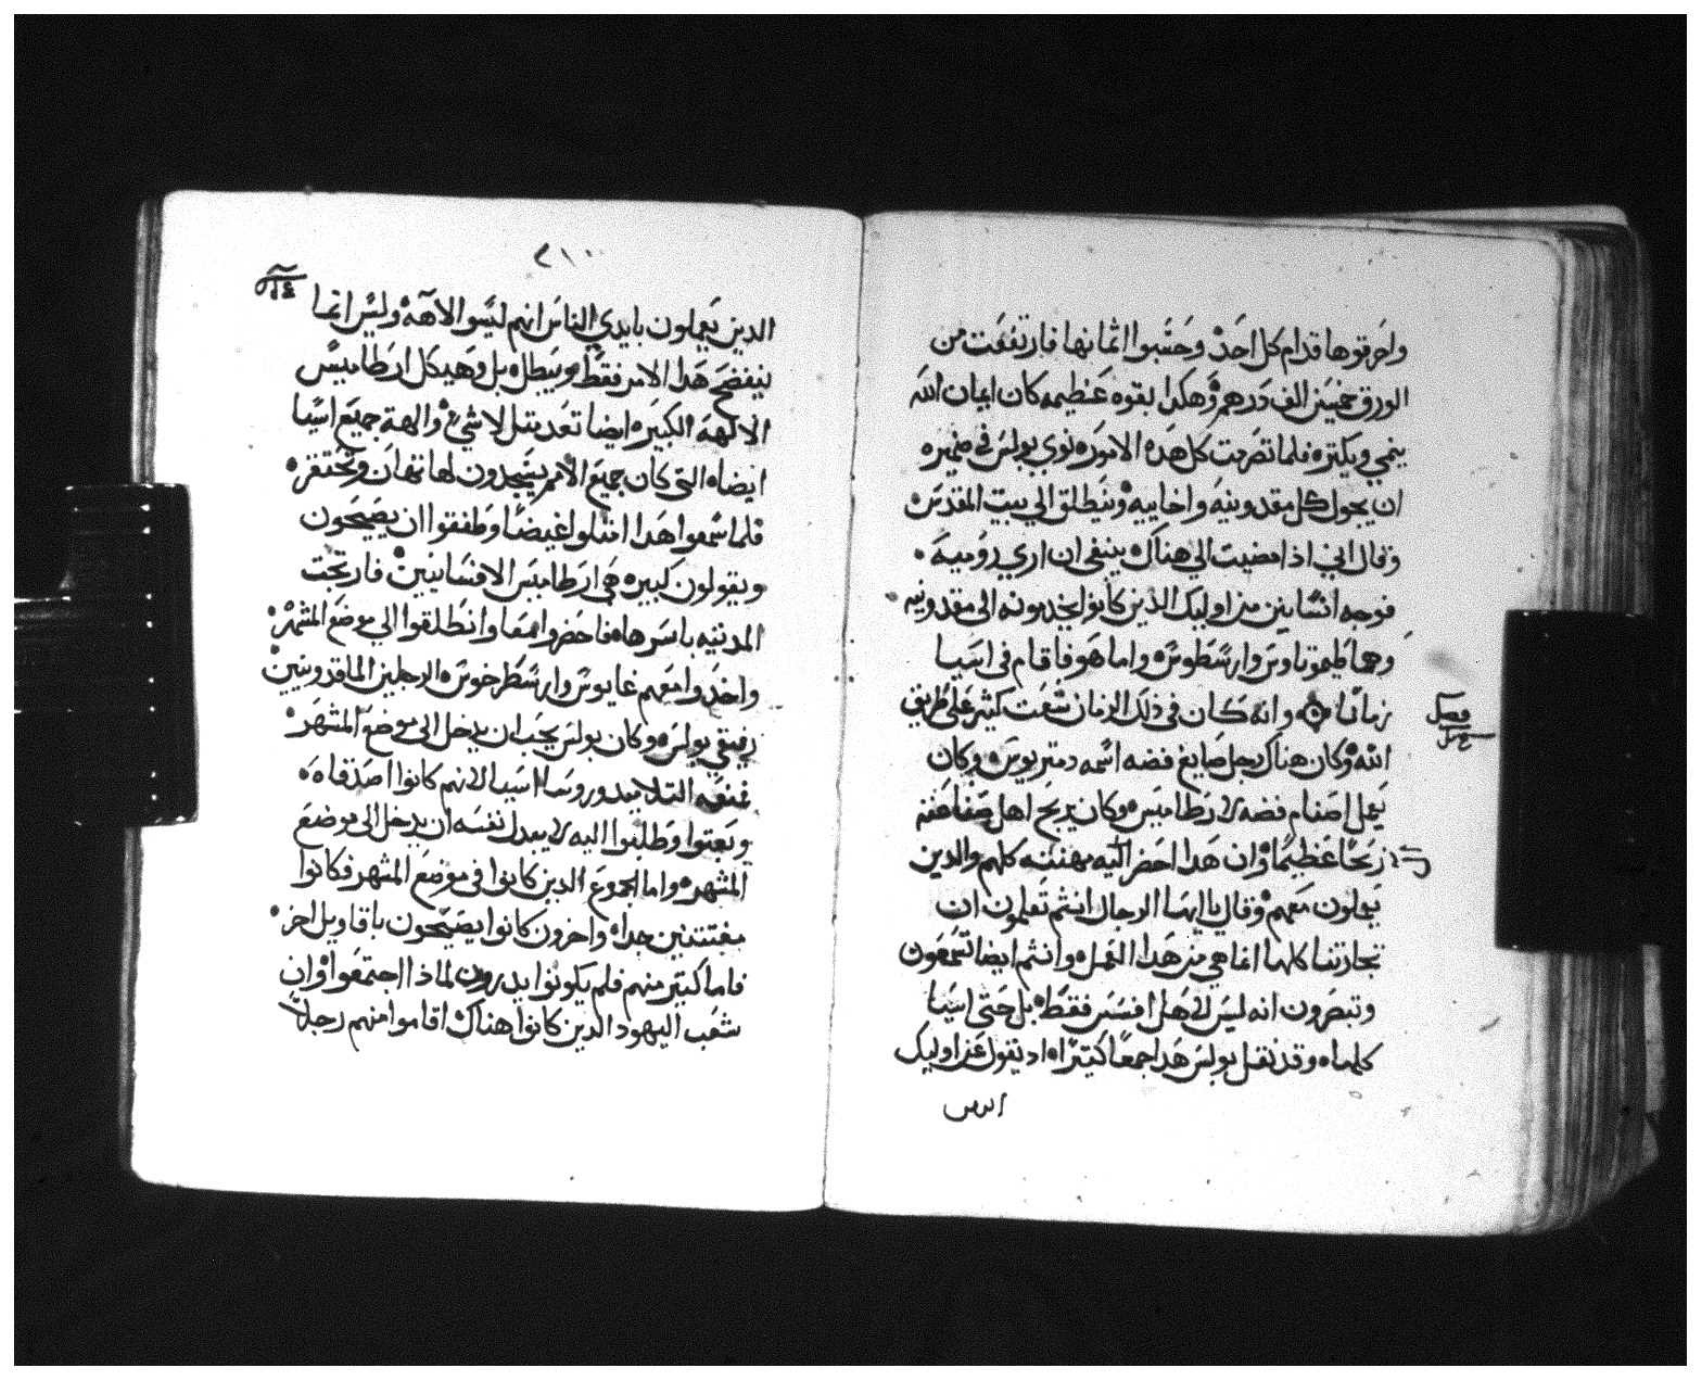 واحرقوها قدام كل احد وحسبوا اثمانها فارتفعت من
الورق خمسين الف درهم وهكدا بقوه عظيمه كان ايمان الله
ينمي ويكتره فلما تصرمت كل هده الامور نوي بولس في ضميره
ان يجول كل مقدونيه واخاييه وينطلق الي بيت المقدس
وقال اني اذا مضيت الي هناك ينبغي ان اري روميه
فوجه انسانين من اوليك الذين كانوا يخدمونه الى مقدونيه
وهما طيموتاوس وارسطوس واما هو فاقام في اسيا
زمانا وانه كان في ذلك الزمان شغب كثير على طريق
فصل
الله وكان هناك رجل صايغ فضه اسمه دمتريوس وكان
يعمل اصنام فضه لارطاميس وكان يربح اهل صناعته
ربحا عظيما وان هدا احضر اليه مهنته كلهم والدين
يعملون معهم وقال يا ايها الرجال انتم تعلمون ان
تجارتنا كلها انما هي من هدا العمل وانتم ايضا تسمعون
وتبصرون انه ليس لاهل افسس فقط بل حتى اسيا
كلها وقد نقل بولس هدا جمعا كتيرا اد يقول عن اوليك
الدين
٢١٠
الدين يعملون بايدي الناس انهم ليسوا الآهه وليس انما
ينفضح هدا الامر فقط ويبطل بل وهيكل ارطاميس
الالهه الكبيره ايضا تعد متل لاشي والهة جميع اسيا
ايضا التي كان جميع الامم يسجدون لها تهان وتحتقر
فلما سمعوا هدا امتلوا غيضا وطفقوا ان يصيحون
ويقولون كبيره هي ارطاميس الافسانيين فارتجت
المدينه باسرها فاحضروا معا وانطلقوا الي موضع المشهر
واخدوا معهم غايوس وارسطرخوس الرجلين الماقدونيين
رفيقي بولس وكان بولس يحب ان يدخل الى موضع المشهر
فمنعه التلاميد وروسا اسيا لانهم كانوا اصدقاه
وبعتوا وطلبوا اليه لا يبدل نفسه ان يدخل الى موضع
المشهر واما الجموع الدين كانوا في موضع المشهر فكانوا
مفتتنين جدا واخرون كانوا يصيحون باقاويل اخر
فاما كتير منهم فلم يكونوا يدرون لماذا اجتمعوا وان
شعب اليهود الدين كانوا هناك اقاموا منهم رجلا